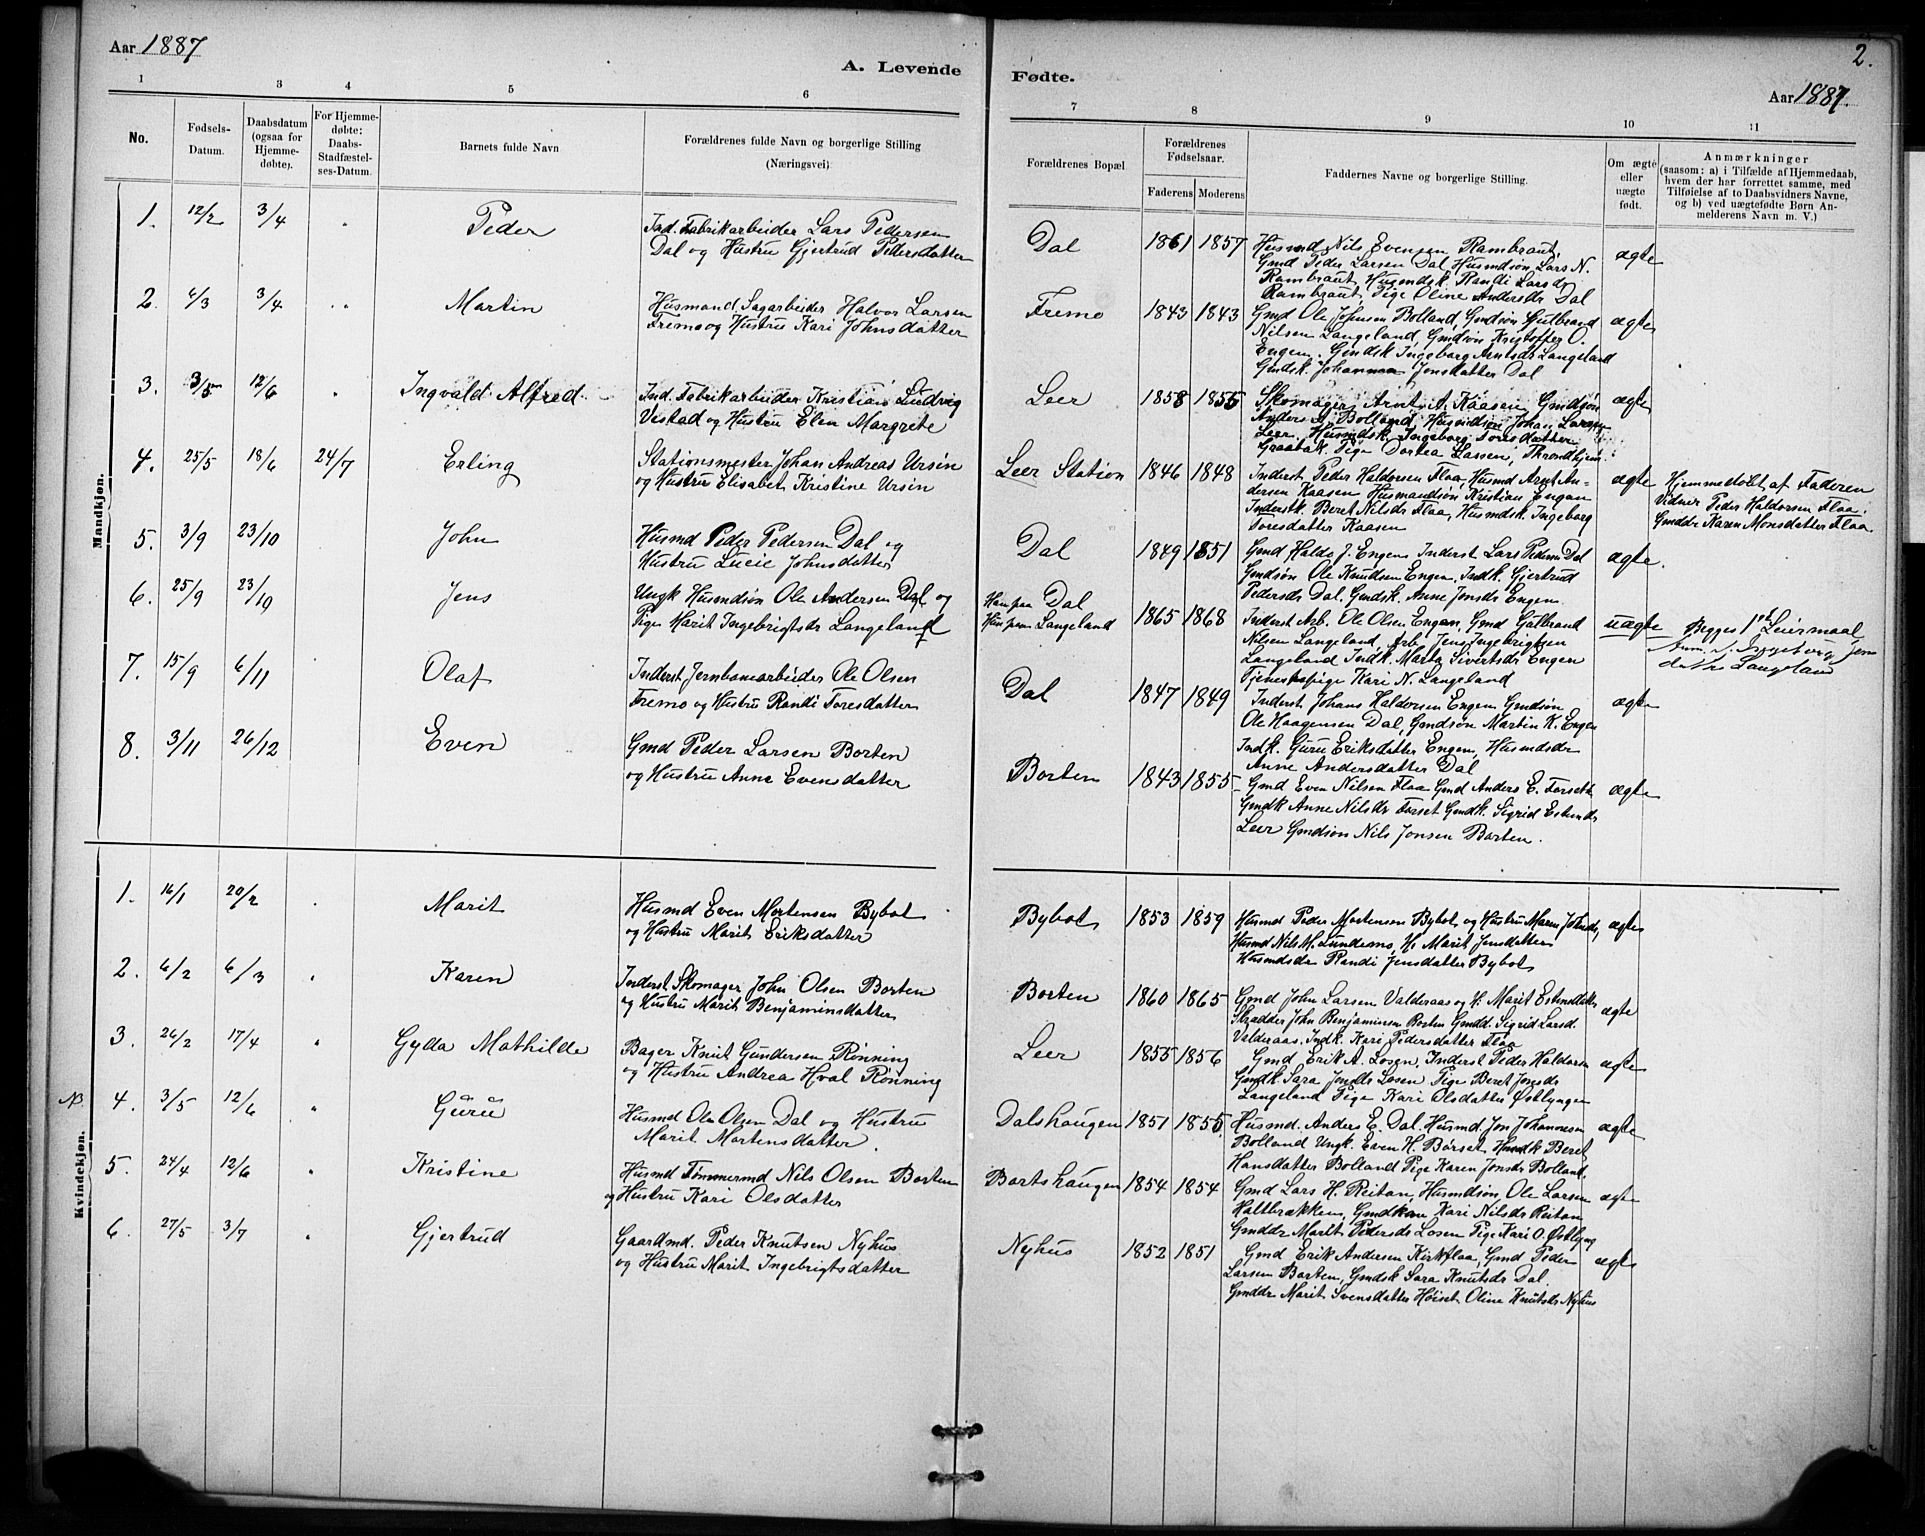 Aar 1887
A. Levende
1 3 4 5 6
No.
Fødsels-
Datum.
Daabsdatum
(ogsaa for
Hjemme-
døbte).
For Hjemme-
døbte:
Daabs-
Stadfæstel-
ses-Datum.
Barnets fulde Navn
Forældrenes fulde Navn og borgerlige Stilling
(Næringsvei)
Mandkjøn.
1. 12/2 3/4 " Peder
Ind. Fabrikarbeider Lars Pedersen
Dal og Hustru Gjertrud Pedersdatter
2. 6/3 3/4 " Martin
Husmand. Sagarbeider Halvor Larsen
Fremo og Hustru Kari Johnsdatter
3. 12/6 " Ingvald Alfred
Ind. Fabrikarbeider Kristian Ludvig
Vestad og Hustru Elen Margrete
4. 25/5 18/6 24/7 Erling
Stationsmester Johan Andreas Ursin
og Hustru Elisabet Kristine Ursin
5. 3/9 23/10 John
Husmd Peder Pedersen Dal og
Hustru Lucie Johnsdatter
6. 25/9 23/10 Jens
Ungk Husmdsøn Ole Andersen Dal og
Pige Marit Ingebrigtsdr Langeland
7. 15/9 6/11 Olaf
Inderst Jernbanearbeider Ole Olsen
Fremo og Hustru Randi Toresdatter
8. 3/11 26/12 Even
Gmd Peder Larsen Borten
og Hustru Anne Evensdatter
Kvindekjøn.
1. 16/1 20/2 Marit
Husmd Even Mortensen Bybot
og Hustru Marit Eriksdatter
2. 6/2 6/3 " Karen
Inderst Skomager John Olsen Borten
og Hustru Marit Benjaminsdatter
3. 26/2 17/4 " Gyda Mathilde
Bager Knut Gundersen Rønning
og Hustru Andrea Hval Rønning
NB. 4. 3/5 12/6 " Guru
Husmd Ole Olsen Dal og Hustru
Marit Mortensdatter
5. 24/4 12/6 " Kristine
Husmd Tømmermd Nils Olsen Borten
og Hustru Kari Olsdatter
6. 27/5 3/7 " Gjertrud
Gaardmd. Peder Knutsen Nyhus
og Hustru Marit Ingebrigtsdatter
2.
Fødte.
Aar 1887.
7 8 9 10 11
Forældrenes Bopæl
Forældrenes
Fødselsaar.
Faderens Moderens
Faddernes Navne og borgerlige Stilling.
Om ægte
eller
uægte
født.
Anmærkninger
(saasom: a) i Tilfælde af Hjemmedaab,
hvem der har forrettet samme, med
Tilføielse af to Daabsvidners Navne,
og b) ved uægtefødte Børn An-
melderens Navn m. V.)
Dal 1861 1857 Husmd Nils Evensen Rambraut, ægte
Gmd Peder Larsen Dal, Husmdsøn Lars N.
Rambraut, Husmdsk. Randi Larsdr
Rambraut, Pige Oline Andersdr Dal
Fremo 1843 1843 Gmd Ole Johnsen Bolland, Gmdsøn Gulbrand ægte
Nilsen Langeland, Gmdsøn Kristoffer O.
Engen. Gmdsk Ingeborg Arntsdr Langeland
Gmdsk. Johanna Jonsdatter Dal
Leer 1858 1855 Skomager Arnt A. Kaasen, Gmdsøn ægte
Anders J. Bolland, Husmdsøn Johan Larsen
Leer. Husmdsk. Ingeborg Toresdatter
Graabak. Pige Dortea Lassen, Throndhjem.
Leer Station 1846 1848 Inderst Peder Haldorsen Flaa, Husmd Arnt An- ægte
dersen Kaasen Husmandsøn Kristian Engan
Inderstk. Beret Nilsdr Flaa, Husmdsk. Ingeborg
Toresdatter Kaasen
Hjemmedøbt af Faderen
Vidner Peder Haldorsen Flaa.
Gmddr Karen Monsdatter Flaa.
Dal 1849 1851 Gmd Haldo J. Engen Inderst Lars Pedersen Dal ægte.
Gmdsøn Ole Knudsen Engen, Indk. Gjertrud
Pedersdr Dal. Gmdsk. Anne Jonsdr Engen
Han paa Dal
Hun paa Langeland 1865 1868 Inderst Arb. Ole Olsen Engan, Gmd Gulbrand uægte
Nilsen Langeland, Arb. Jens Ingebrigtsen
Langeland Indk. Marta Sivertsdr Engen
Tjenestepige Kari N. Langeland
Begges 1ste Leiermaal
Langeland
Dal 1847 1849 Inderst Johans Haldorsen Engen Gmdsøn ægte
Ole Haagensen Dal, Gmdsøn Martin K. Engen
Indk. Guru Eriksdatter Engen, Husmdsdr
Anne Andersdatter Dal
Borten 1843 1855 Gmd Even Nilsen Flaa Gmd Anders E. Forseth ægte
Gmdk Anne Nilsdr Forset Gmdk. Sigrid Estensdr
Leer Gmdsøn Nils Jonsen Borten.
Bybot 1853 1859 Husmd Peder Mortensen Bybot og Hustru Maren Johnsdr, ægte
Husmd Nils M. Lundemo, H. Marit Jensdatter
Husmdsdr Randi Jensdatter Bybot
Borten 1860 1865 Gmd John Larsen Valderaas og H. Marit Estensdatter ægte
Skrædder John Benjaminsen Borten Gmdd. Sigrid Larsd.
Valderaas. Indk. Kari Pedersdatter Flaa
Leer 1855 1856 Gmd Erik A. Losen, Inderst Peder Haldorsen ægte
Gmdk. Sara Jonsdr Losen Pige Beret Jonsdr
Langeland Pige Kari Olsdatter Østlyngen
Dalshaugen 1851 1855 Husmd. Anders E. Dal. Husmd. Jon Johannesen ægte
Bolland Ungk. Even H. Børset, Husmdk Beret
Hansdatter Bolland Pige Karen Jonsdr Bolland.
Bortshaugen 1854 1854 Gmd Lars H. Reitan, Husmdsøn Ole Larsen ægte
Haltbrækken, Gmdkone Kari Nilsdr Reitan
Gmddr Marit Pedersdr Losen Pige Kari O. Østlyng
Nyhus 1852 1851 Gmd Erik Andersen Kirkflaa, Gmd Peder ægte
Larsen Borten, Gmdsk Sara Knutsdr Dal.
Gmddr Marit Svensdatter Høiset Oline Knutsdr Nyhus